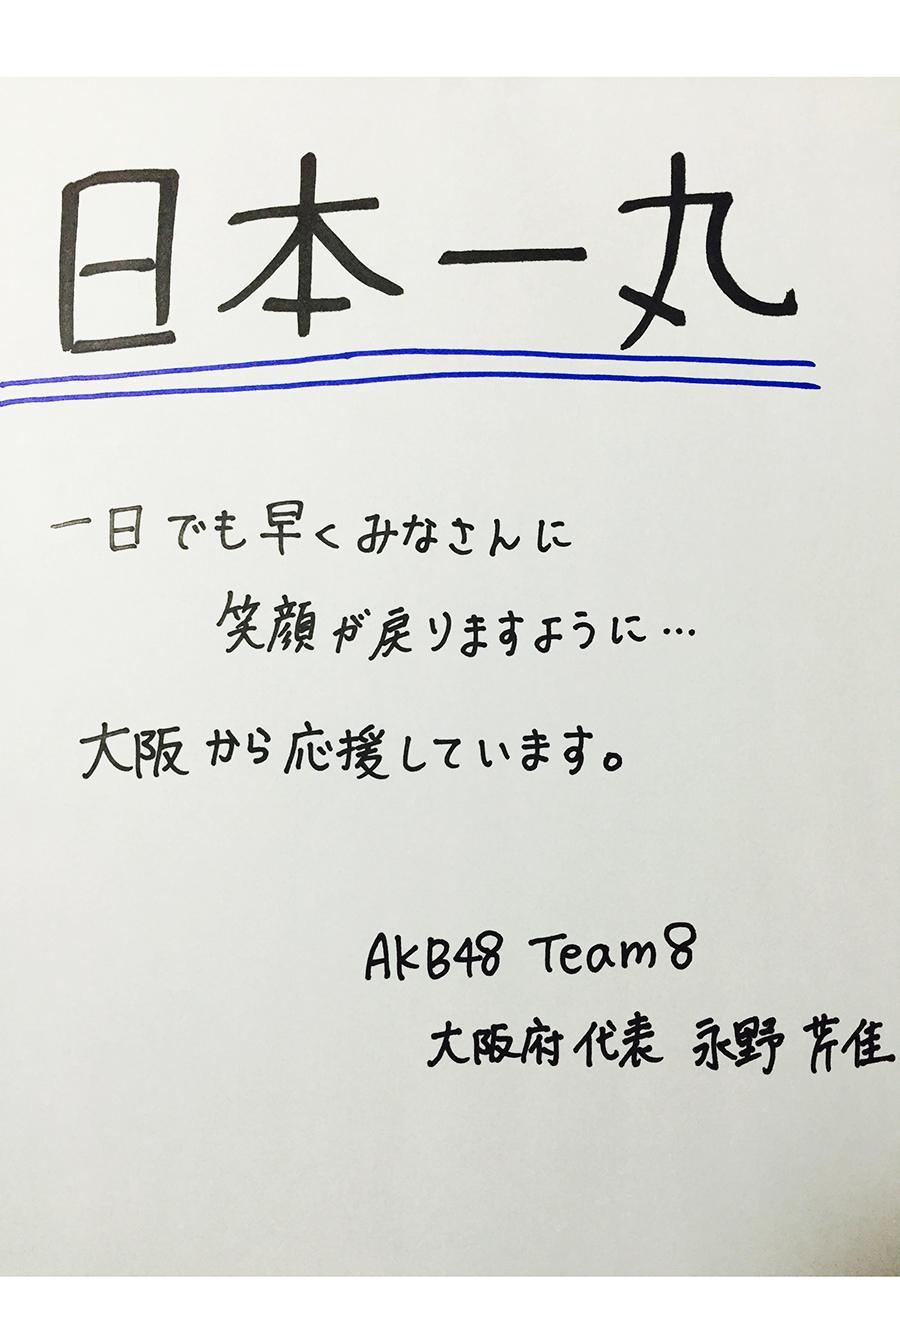 日本一丸
一日でも早くみなさんに
笑顔が戻りますように…
大阪から応援しています。
AKB48 Team8
大阪府代表 永野芹佳